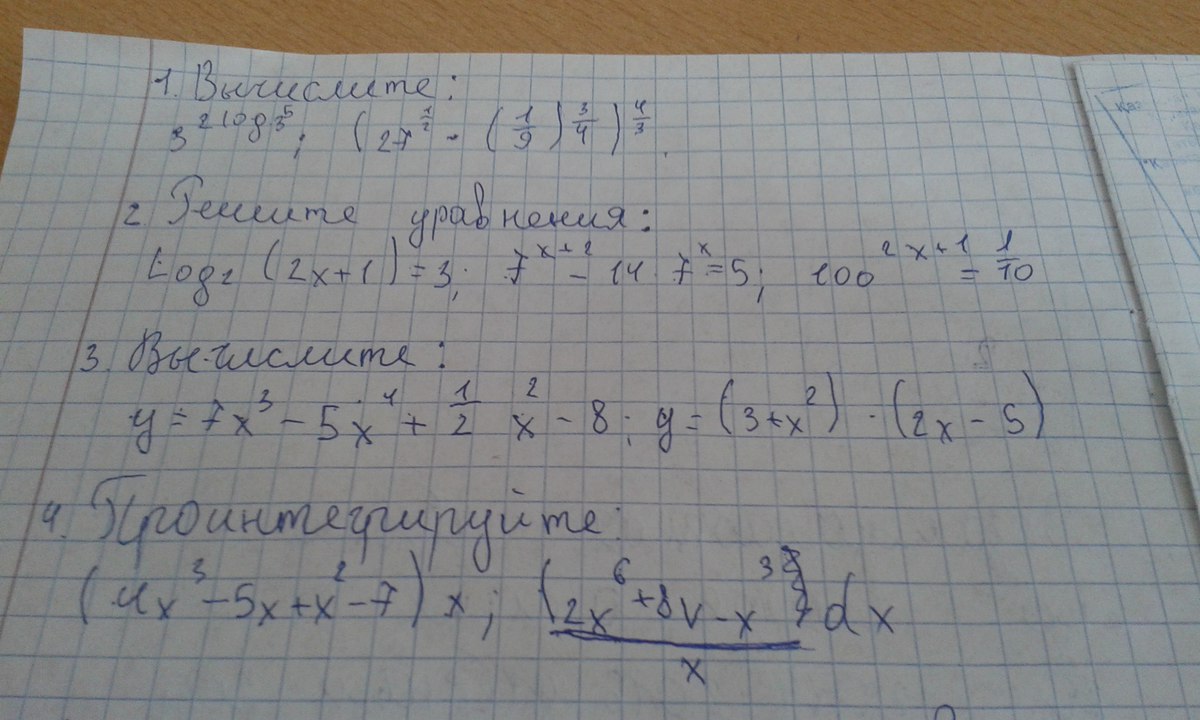 1. Вычислите:
3^(2log₃5); (27^(1/2) · (1/9)^(3/4))^(4/3).
2. Решите уравнения:
Log₂ (2x+1)=3; 7^(x+2) - 14 7^x=5; 100^(2x+1) = 1/10
3. Вычислите:
y=7x³-5x⁴+1/2 x²-8; y=(3+x²)·(2x-5)
4. Проинтегрируйте:
(4x³-5x+x²-7)x; (2x⁶+8v-x³ dx
x